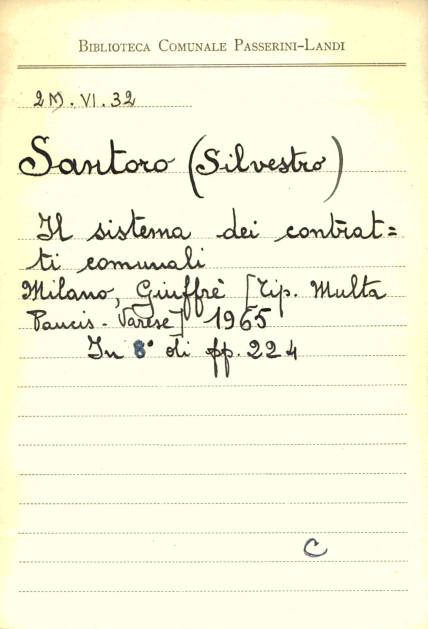 BIBLIOTECA COMUNALE PASSERINI-LANDI
2M.VI.32
Santoro (Silvestro)
Il sistema dei contrat=
ti comunali
Milano, Giuffrè [Tip. Multa
Paucis - Varese] 1965
In 8° di pp. 224
C